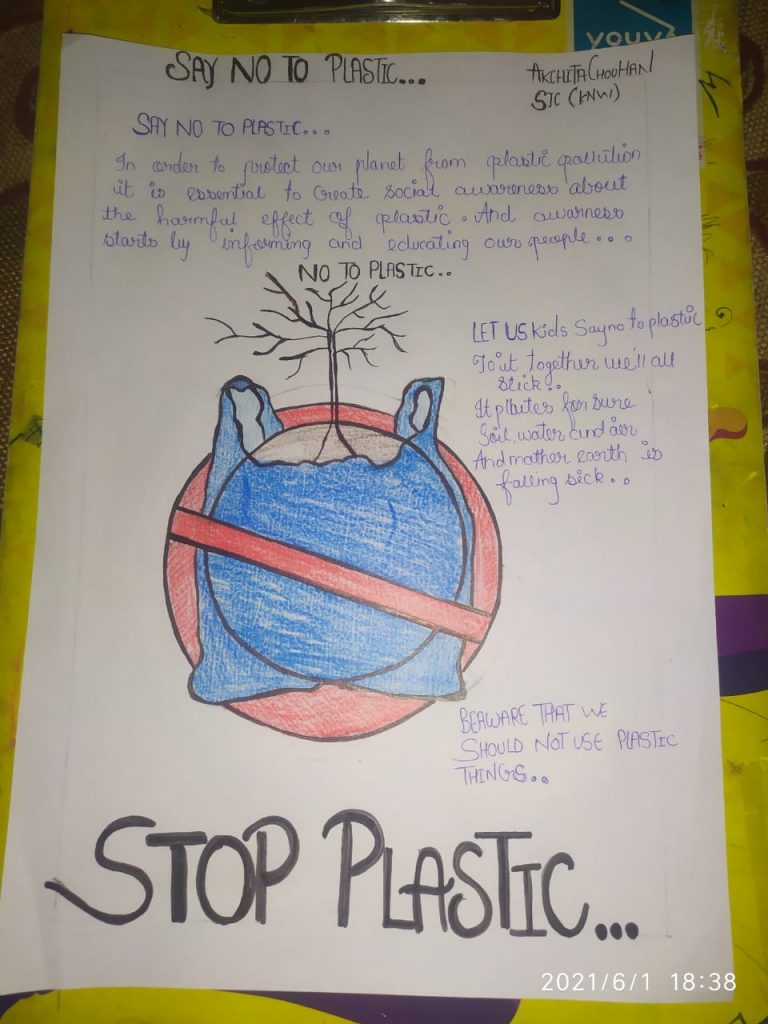 youv
SAY NO TO PLASTIC...
ARCHITA CHOUHAN
STC (KNWI)
SAY NO TO PLASTIC...
In order to protect our planet from plastic pollution
it is essential to create social awareness about
the harmful effect of plastic. And awarness
starts by informing and educating our people...
NO TO PLASTIC..
LET US Kids Say no to plastic,
To it together we'll all
stick..
It pllutes for sure
Soil, water and air
And mather earth is
falling sick..
BEAWARE THAT WE
SHOULD NOT USE PLASTIC
THINGS..
STOP PLASTIC...
2021/6/1 18:38